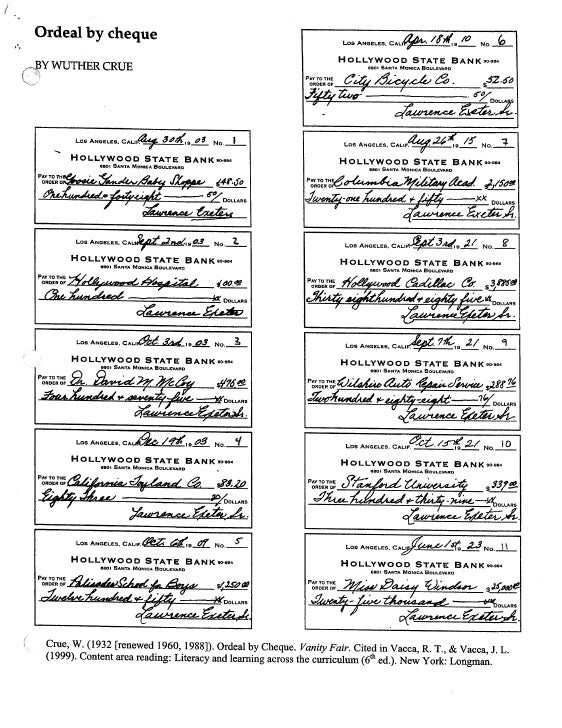 Ordeal by cheque
BY WUTHER CRUE
LOS ANGELES, CALIF. Aug 30th 19 03 No. 1
HOLLYWOOD STATE BANK 90-984
6801 SANTA MONICA BOULEVARD
PAY TO THE
ORDER OF Goosie Gander Baby Shoppe $148.50
One hundred & forty eight — 50/ DOLLARS
Lawrence Exeter
LOS ANGELES, CALIF. Sept 2nd 19 03 No. 2
HOLLYWOOD STATE BANK 90-984
6801 SANTA MONICA BOULEVARD
PAY TO THE
ORDER OF Hollywood Hospital $100.00
One hundred — xx DOLLARS
Lawrence Exeter
LOS ANGELES, CALIF. Oct 3rd 19 03 No. 3
HOLLYWOOD STATE BANK 90-984
6801 SANTA MONICA BOULEVARD
PAY TO THE
ORDER OF Dr. David M. McCoy $475.00
Four hundred & seventy five — xx DOLLARS
Lawrence Exeter Sr.
LOS ANGELES, CALIF. Dec 19th 19 03 No. 4
HOLLYWOOD STATE BANK 90-984
6801 SANTA MONICA BOULEVARD
PAY TO THE
ORDER OF California Toyland Co. $83.20
Eighty Three — 20/ DOLLARS
Lawrence Exeter Sr.
LOS ANGELES, CALIF. Oct. 6th 19 09 No. 5
HOLLYWOOD STATE BANK 90-984
6801 SANTA MONICA BOULEVARD
PAY TO THE
ORDER OF Palisades School for Boys $1,250.00
Twelve hundred & fifty — xx DOLLARS
Lawrence Exeter Sr.
LOS ANGELES, CALIF. Apr. 18th 19 10 No. 6
HOLLYWOOD STATE BANK 90-984
6801 SANTA MONICA BOULEVARD
PAY TO THE
ORDER OF City Bicycle Co. $52.50
Fifty two — 50/ DOLLARS
Lawrence Exeter Sr.
LOS ANGELES, CALIF. Aug. 26th 19 15 No. 7
HOLLYWOOD STATE BANK 90-984
6801 SANTA MONICA BOULEVARD
PAY TO THE
ORDER OF Columbia Military Acad. $2,150.00
Twenty-one hundred & fifty — xx DOLLARS
Lawrence Exeter Sr.
LOS ANGELES, CALIF. Sept 3rd 19 21 No. 8
HOLLYWOOD STATE BANK 90-984
6801 SANTA MONICA BOULEVARD
PAY TO THE
ORDER OF Hollywood Cadillac Co. $3,885.00
Thirty eight hundred & eighty five xx DOLLARS
Lawrence Exeter Sr.
LOS ANGELES, CALIF. Sept. 7th 19 21 No. 9
HOLLYWOOD STATE BANK 90-984
6801 SANTA MONICA BOULEVARD
PAY TO THE
ORDER OF Wilshire Auto Repair Service $288.76
Two hundred & eighty-eight — 76/ DOLLARS
Lawrence Exeter Sr.
LOS ANGELES, CALIF. Oct 15th 19 21 No. 10
HOLLYWOOD STATE BANK 90-984
6801 SANTA MONICA BOULEVARD
PAY TO THE
ORDER OF Stanford University $339.00
Three hundred & thirty-nine — xx DOLLARS
Lawrence Exeter Sr.
LOS ANGELES, CALIF. June 1st 19 23 No. 11
HOLLYWOOD STATE BANK 90-984
6801 SANTA MONICA BOULEVARD
PAY TO THE
ORDER OF Miss Daisy Windsor $25,000.00
Twenty-five thousand — xx DOLLARS
Lawrence Exeter Sr.
Crue, W. (1932 [renewed 1960, 1988]). Ordeal by Cheque. Vanity Fair. Cited in Vacca, R. T., & Vacca, J. L.
(1999). Content area reading: Literacy and learning across the curriculum (6th ed.). New York: Longman.